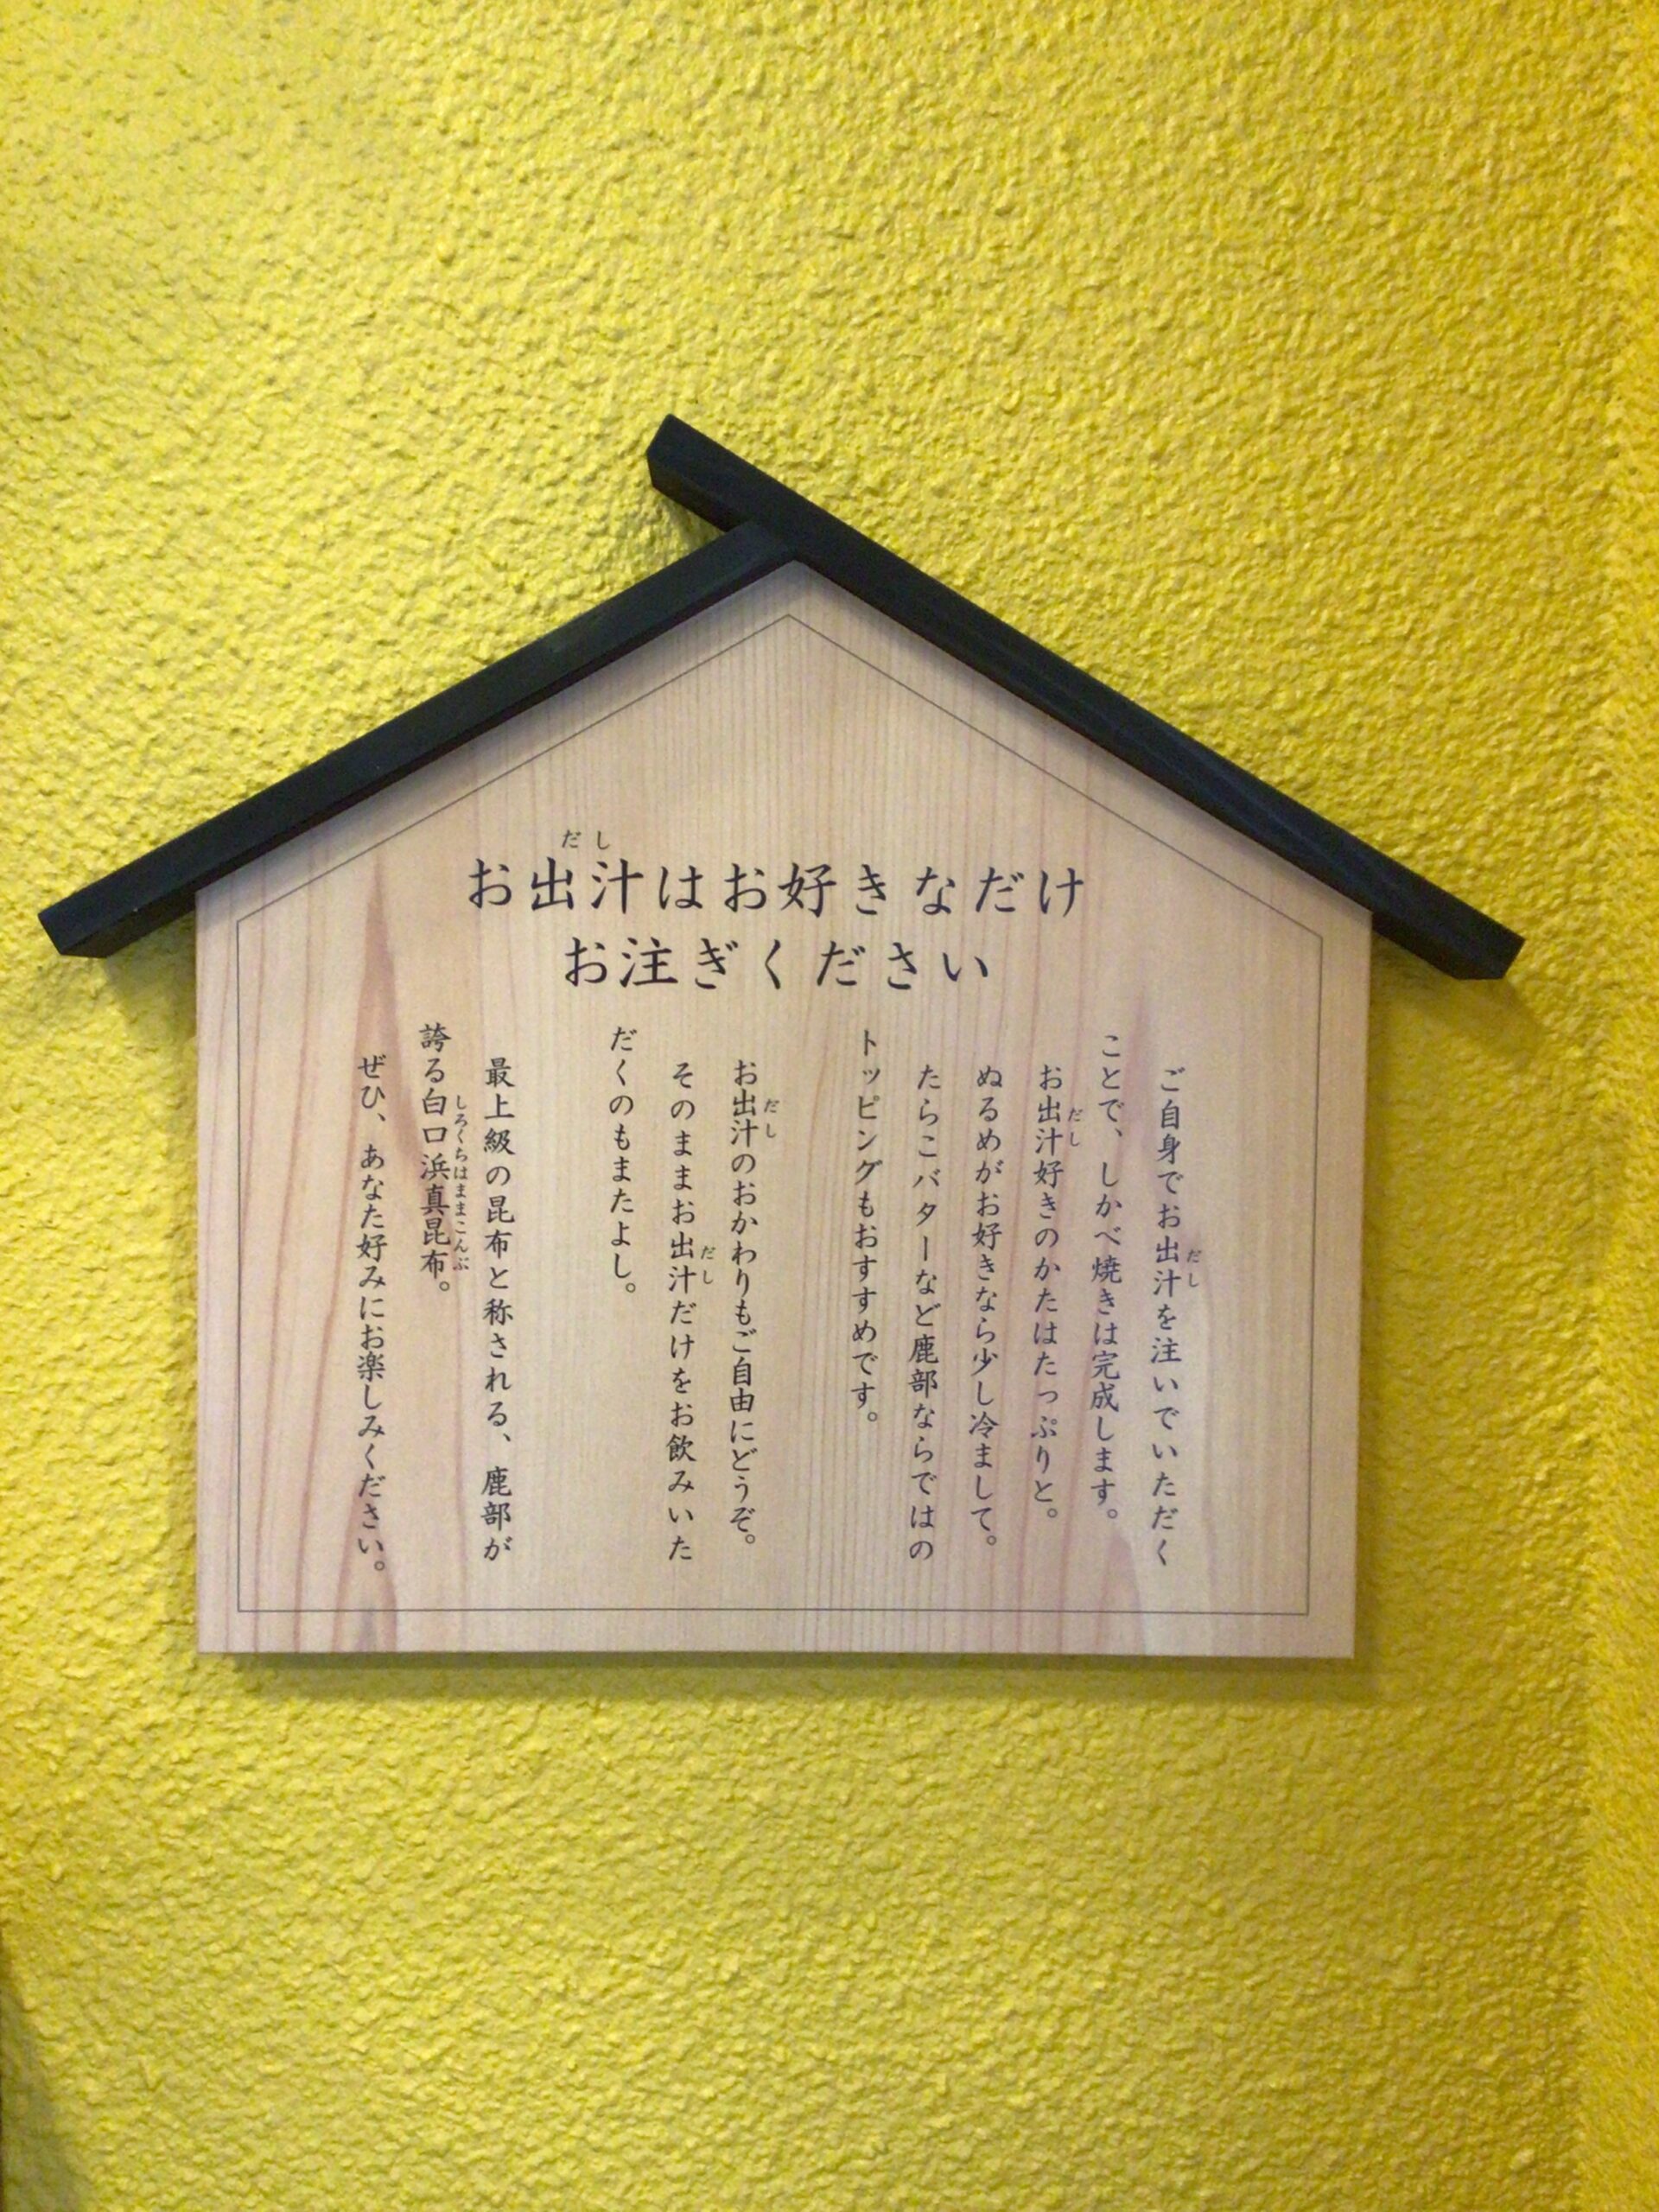 お出汁はお好きなだけ
お注ぎください
ご自身でお出汁を注いでいただく
ことで、しかべ焼きは完成します。
お出汁好きのかたはたっぷりと。
ぬるめがお好きなら少し冷まして。
たらこバターなど鹿部ならではの
トッピングもおすすめです。
お出汁のおかわりもご自由にどうぞ。
そのままお出汁だけをお飲みいた
だくのもまたよし。
最上級の昆布と称される、鹿部が
誇る白口浜真昆布。
ぜひ、あなた好みにお楽しみください。